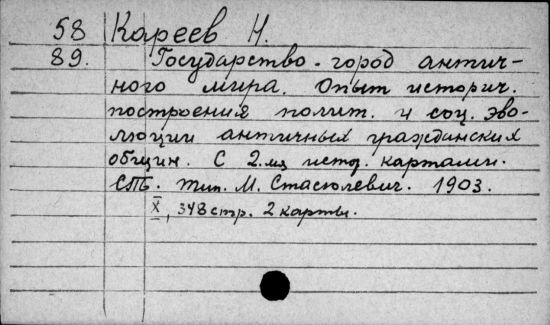 58 Кареев Н.
89. Государство-город антич-
ного мира. Опыт историч.
построения полит. и соц. эво-
люции античных гражданских
общин. С 2-мя истор. картами.
СПб. Тип. М. Стасюлевич. 1903.
X, 348 стр. 2 карты.